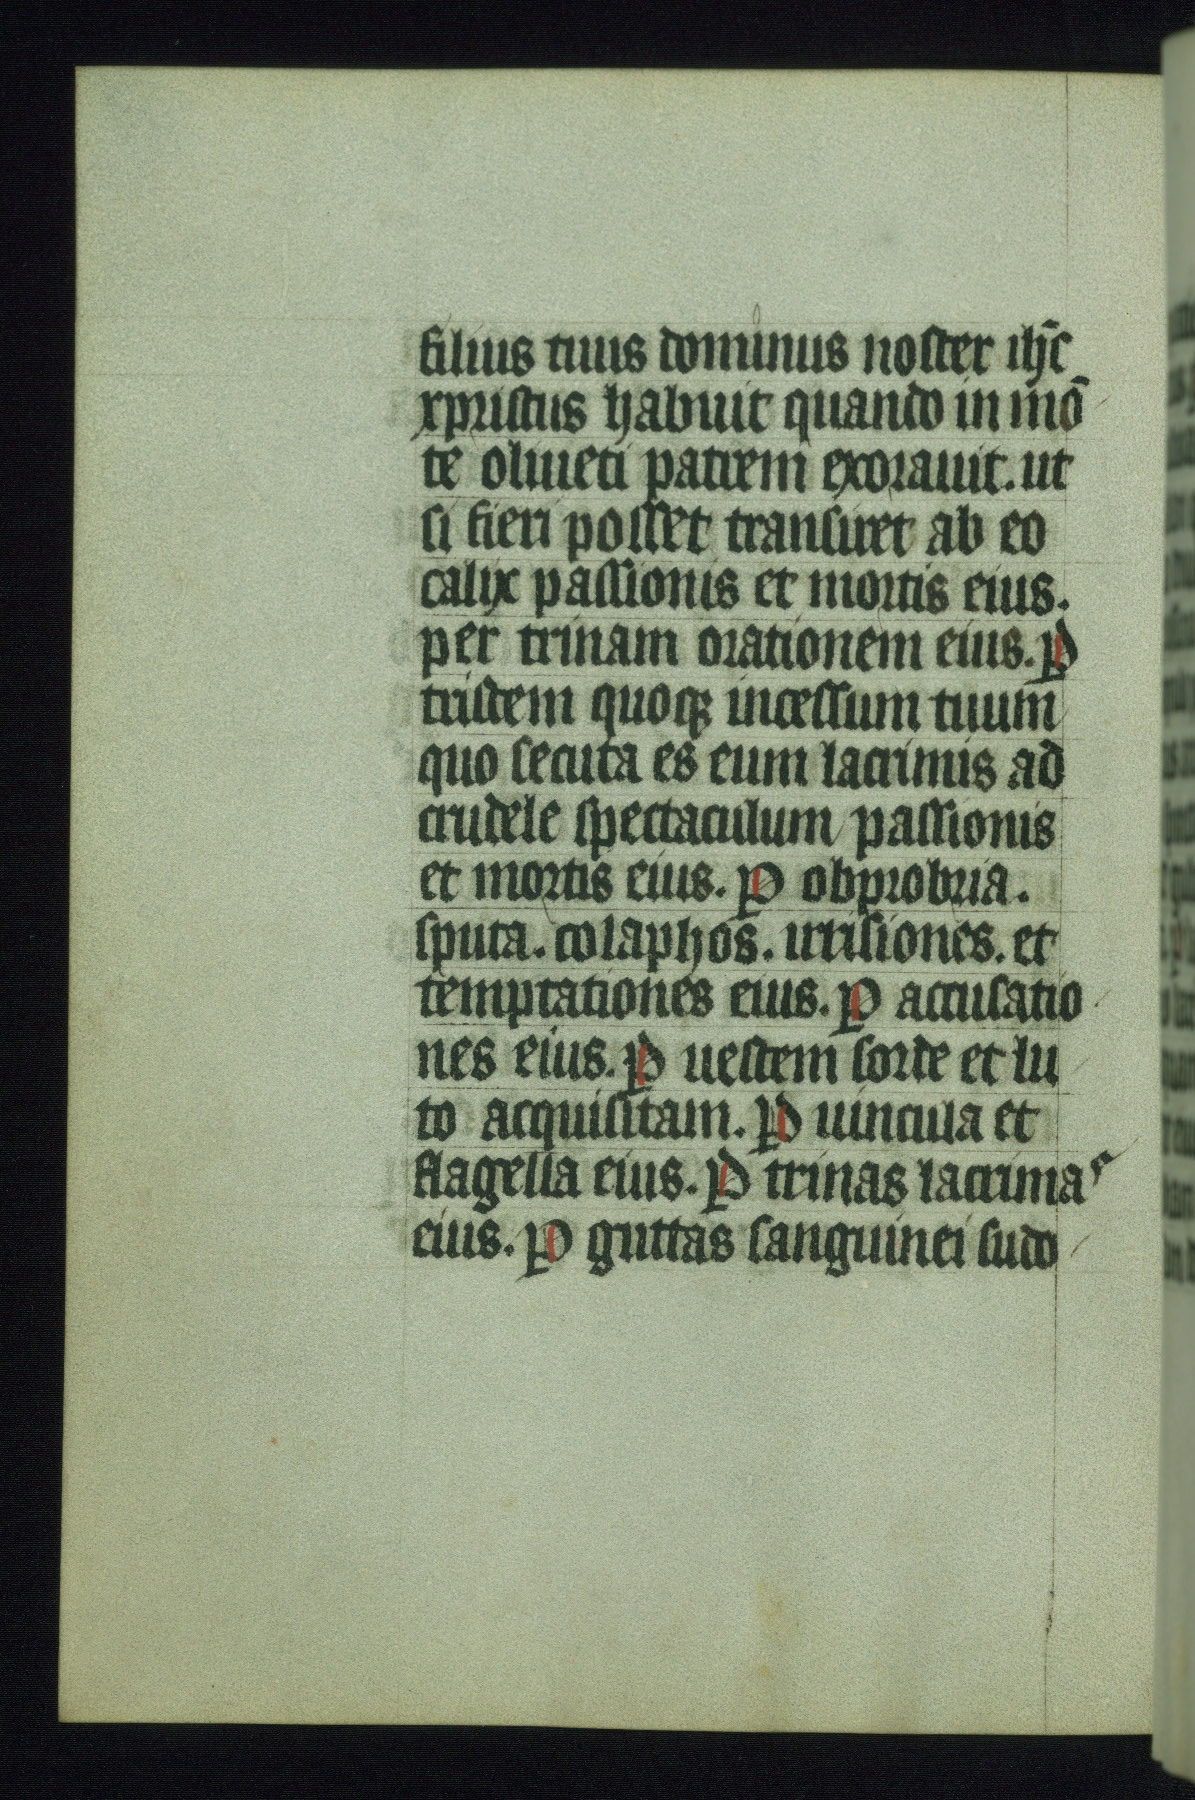 filius tuus dominus noster ihc̄
xpristus habuit quando in mō
te oliueti patrem exorauit. ut
si fieri posset transiret ab eo
calix passionis et mortis eius.
per trinam orationem eius. ꝑ
tristem quoqꝫ incessum tuum
quo secuta es eum lacrimis ad
crudele spectaculum passionis
et mortis eius. ꝑ obprobria.
sputa. colaphos. irrisiones. et
temptationes eius. ꝑ accusatio
nes eius. ꝑ uestem sorde et lu
to acquisitam. ꝑ uincula et
flagella eius. ꝑ trinas lacrimas
eius. ꝑ guttas sanguinei sudo